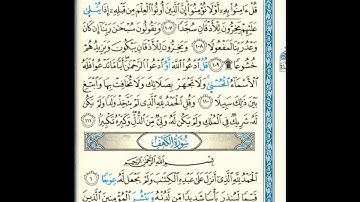 قُلْ ءَامِنُوا۟ بِهِۦٓ أَوْ لَا تُؤْمِنُوٓا۟ إِنَّ ٱلَّذِينَ أُوتُوا۟ ٱلْعِلْمَ مِن قَبْلِهِۦٓ إِذَا يُتْلَىٰ
عَلَيْهِمْ يَخِرُّونَ لِلْأَذْقَانِ سُجَّدًا ١٠٧ وَيَقُولُونَ سُبْحَٰنَ رَبِّنَآ إِن كَانَ
وَعْدُ رَبِّنَا لَمَفْعُولًا ١٠٨ وَيَخِرُّونَ لِلْأَذْقَانِ يَبْكُونَ وَيَزِيدُهُمْ
خُشُوعًا ١٠٩ قُلِ ٱدْعُوا۟ ٱللَّهَ أَوِ ٱدْعُوا۟ ٱلرَّحْمَٰنَ أَيًّا مَّا تَدْعُوا۟ فَلَهُ
ٱلْأَسْمَآءُ ٱلْحُسْنَىٰ وَلَا تَجْهَرْ بِصَلَاتِكَ وَلَا تُخَافِتْ بِهَا وَٱبْتَغِ
بَيْنَ ذَٰلِكَ سَبِيلًا ١١٠ وَقُلِ ٱلْحَمْدُ لِلَّهِ ٱلَّذِى لَمْ يَتَّخِذْ وَلَدًا وَلَمْ يَكُن
لَّهُۥ شَرِيكٌ فِى ٱلْمُلْكِ وَلَمْ يَكُن لَّهُۥ وَلِىٌّ مِّنَ ٱلذُّلِّ وَكَبِّرْهُ تَكْبِيرًۢا ١١١
سُورَةُ الكَهْفِ
بِسْمِ ٱللَّهِ ٱلرَّحْمَٰنِ ٱلرَّحِيمِ
ٱلْحَمْدُ لِلَّهِ ٱلَّذِىٓ أَنزَلَ عَلَىٰ عَبْدِهِ ٱلْكِتَٰبَ وَلَمْ يَجْعَل لَّهُۥ عِوَجَا ١
قَيِّمًا لِّيُنذِرَ بَأْسًا شَدِيدًا مِّن لَّدُنْهُ وَيُبَشِّرَ ٱلْمُؤْمِنِينَ ٱلَّذِينَ